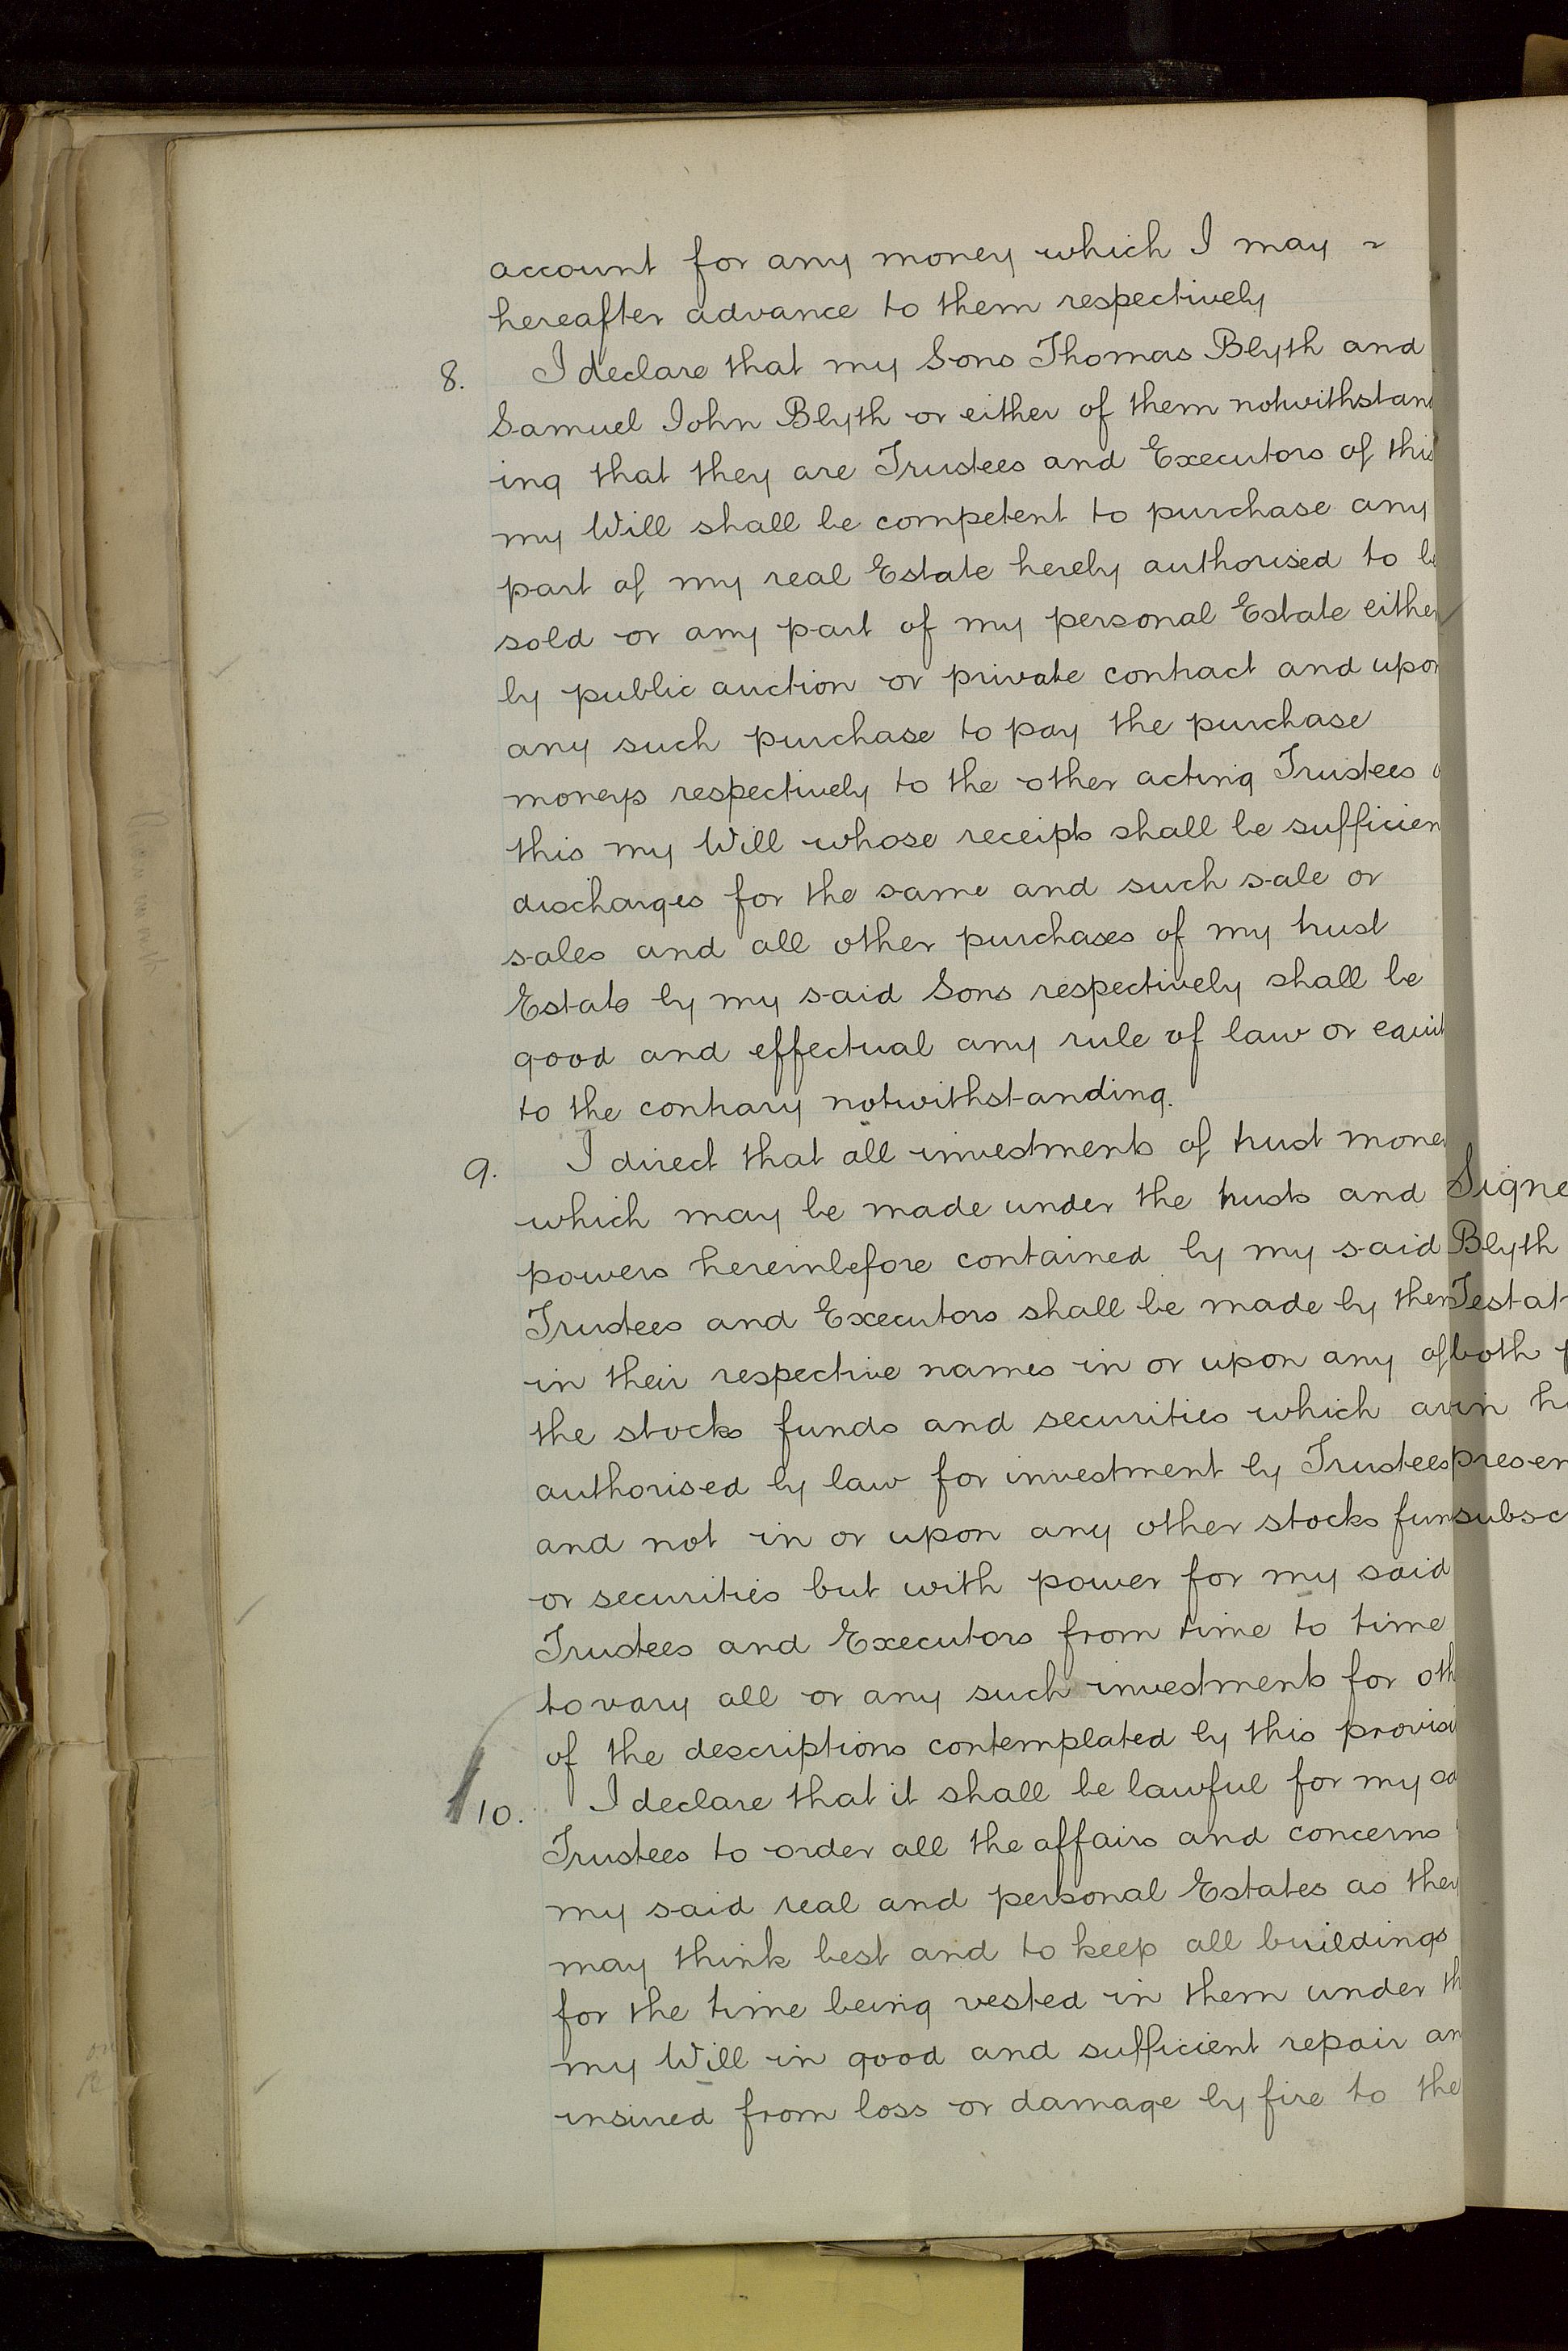 account for any money which I may ~
hereafter advance to them respectively
8. I declare that my Sons Thomas Blyth and
Samuel John Blyth or either of them notwithstand
ing that they are Trustees and Executors of this
my Will shall be competent to purchase any
part of my real Estate hereby authorised to be
sold or any part of my personal Estate either
by public auction or private contract and upon
any such purchase to pay the purchase
moneys respectively to the other acting Trustees
this my Will whose receipts shall be sufficien
discharges for the same and such sale or
sales and all other purchases of my trust
Estate by my said Sons respectively shall be
good and effectual any rule of law or equit
to the contrary notwithstanding.
9. I direct that all investments of trust mone
which may be made under the trusts and
powers hereinbefore contained by my said
Trustees and Executors shall be made by them
in their respective names in or upon any of
the stocks funds and securities which are
authorised by law for investment by Trustees
and not in or upon any other stocks fun
or securities but with power for my said
Trustees and Executors from time to time
to vary all or any such investments for oth
of the descriptions contemplated by this provisi
10. I declare that it shall be lawful for my sa
Trustees to order all the affairs and concerns
my said real and personal Estates as they
may think best and to keep all buildings
for the time being vested in them under th
my Will in good and sufficient repair an
insured from loss or damage by fire to the
Signe
Blyth
Testat
both
in h
presen
subsc